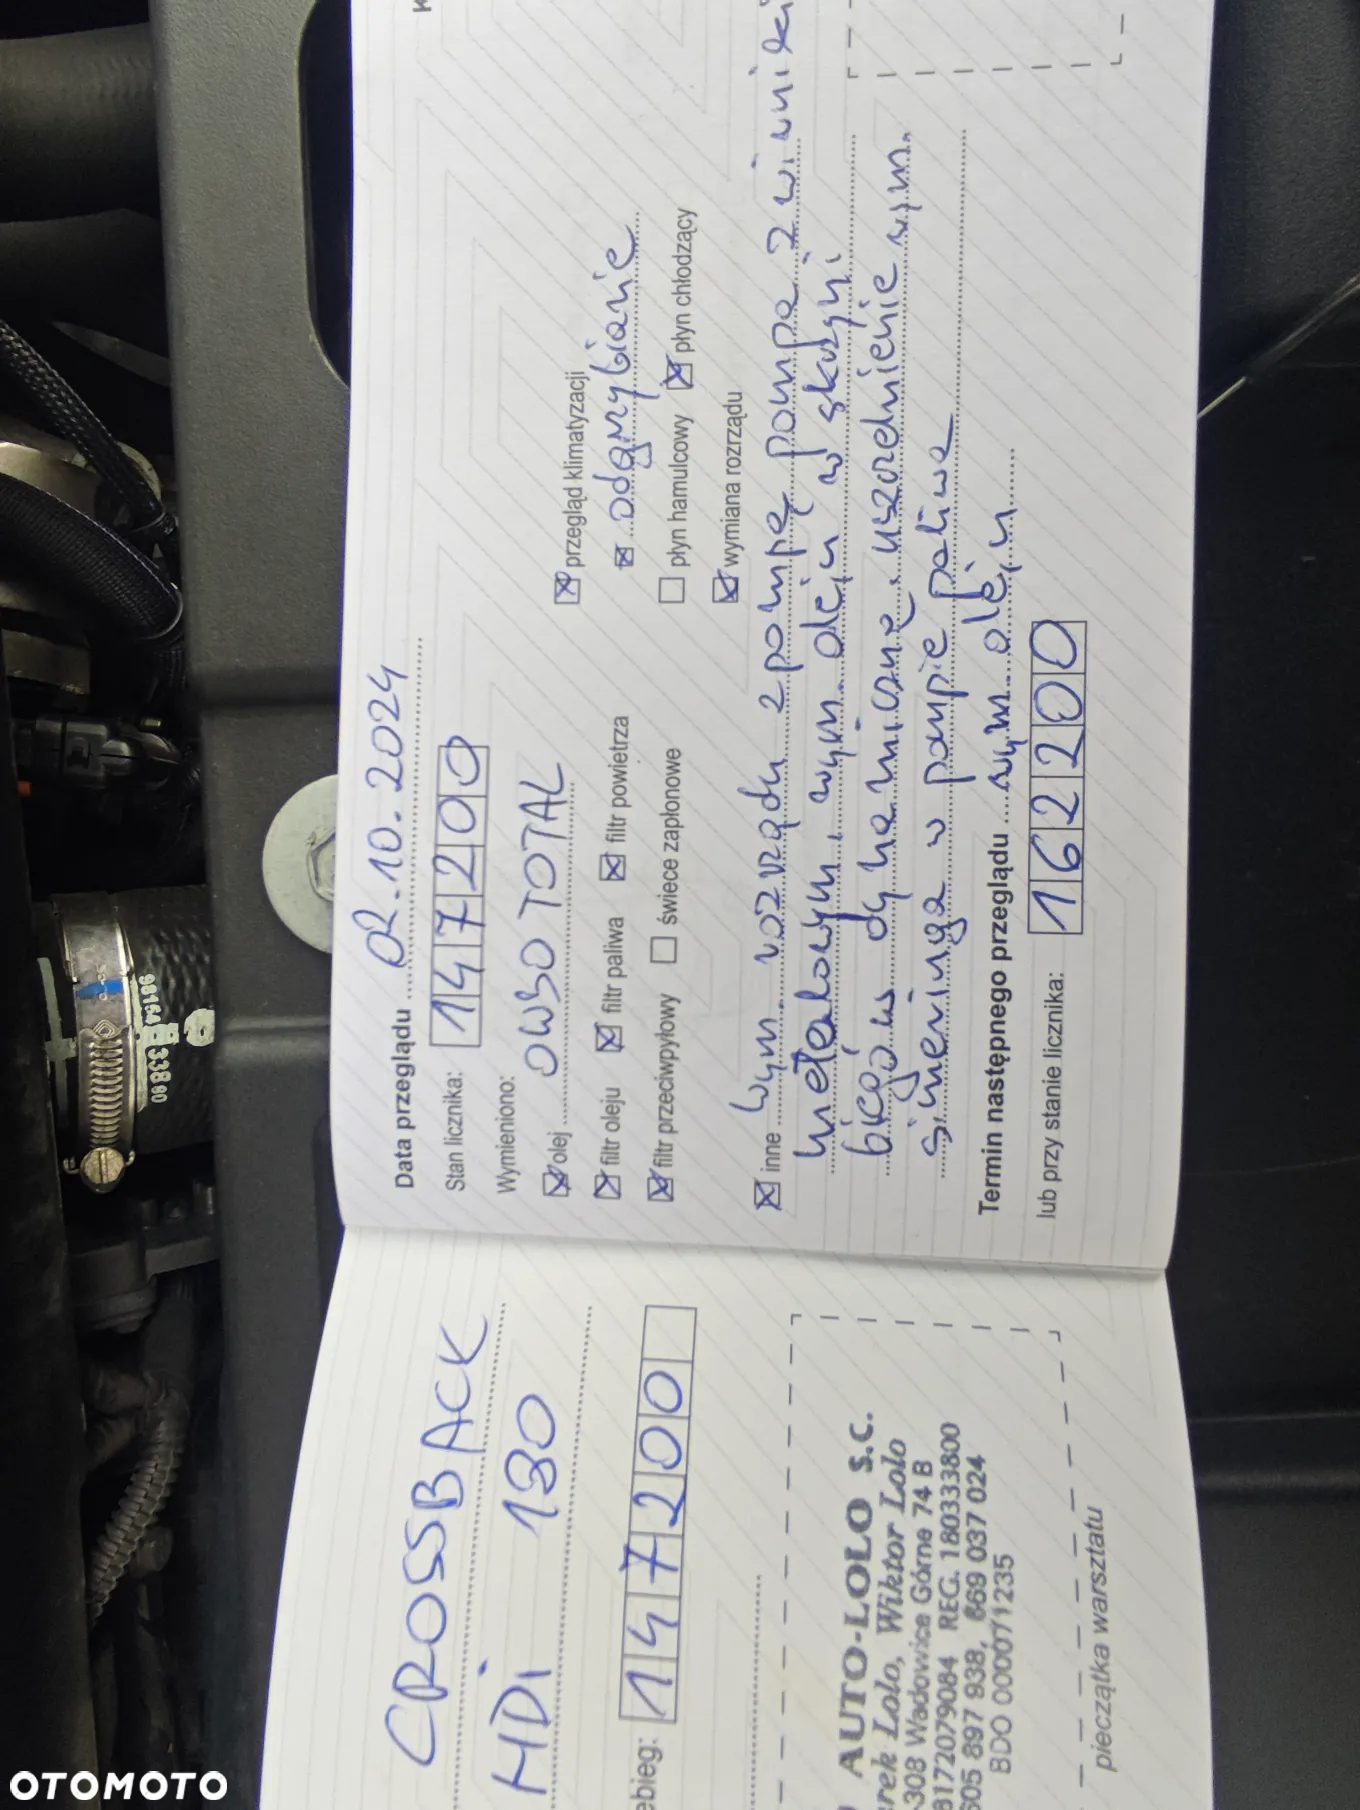 CROSSBACK
HDi 180
ebieg: 147200
AUTO-LOLO S.C.
rek Lolo, Wiktor Lolo
308 Wadowice Górne 74 B
8172079084 REG. 180333800
605 897 938, 669 037 024
BDO 000071235
pieczątka warsztatu
Data przeglądu 02.10.2024
Stan licznika: 147200
Wymieniono:
olej 0W30 TOTAL
przegląd klimatyzacji
filtr oleju filtr paliwa filtr powietrza
odgrzybianie
filtr przeciwpyłowy świece zapłonowe
płyn hamulcowy płyn chłodzący
wymiana rozrządu
inne Wym. rozrządu z pompą pompa z wirnikiem
metalowym, wym. oleju w skrzyni
biegów dynamiczne, uszczelnienie wym.
simeringa w pompie paliwa
Termin następnego przeglądu wym. oleju
lub przy stanie licznika: 162200
98164
33880
OTOMOTO